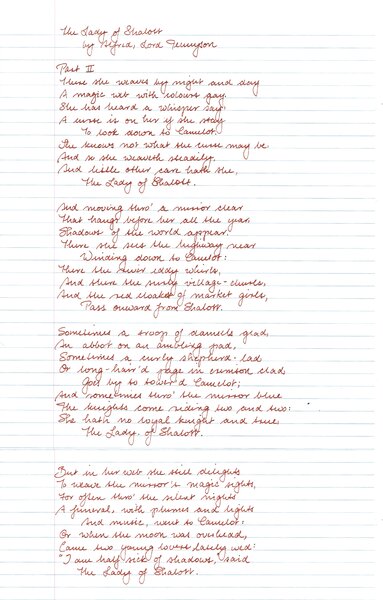 The Lady of Shalott
by Alfred, Lord Tennyson
Part II
There she weaves by night and day
A magic web with colours gay.
She has heard a whisper say,
A curse is on her if she stay
To look down to Camelot.
She knows not what the curse may be
And so she weaveth steadily,
And little other care hath she,
The Lady of Shalott.
And moving thro' a mirror clear
That hangs before her all the year,
Shadows of the world appear.
There she sees the highway near
Winding down to Camelot:
There the river eddy whirls,
And there the surly village-churls,
And the red cloaks of market girls,
Pass onward from Shalott.
Sometimes a troop of damsels glad,
An abbot on an ambling pad,
Sometimes a curly shepherd-lad
Or long-hair'd page in crimson clad
Goes by to tower'd Camelot;
And sometimes thro' the mirror blue
The knights come riding two and two:
She hath no loyal knight and true
The Lady of Shalott.
But in her web she still delights
To weave the mirror's magic sights,
For often thro' the silent nights
A funeral, with plumes and lights
And music, went to Camelot:
Or when the moon was overhead,
Came two young lovers lately wed:
"I am half sick of shadows," said
The Lady of Shalott.